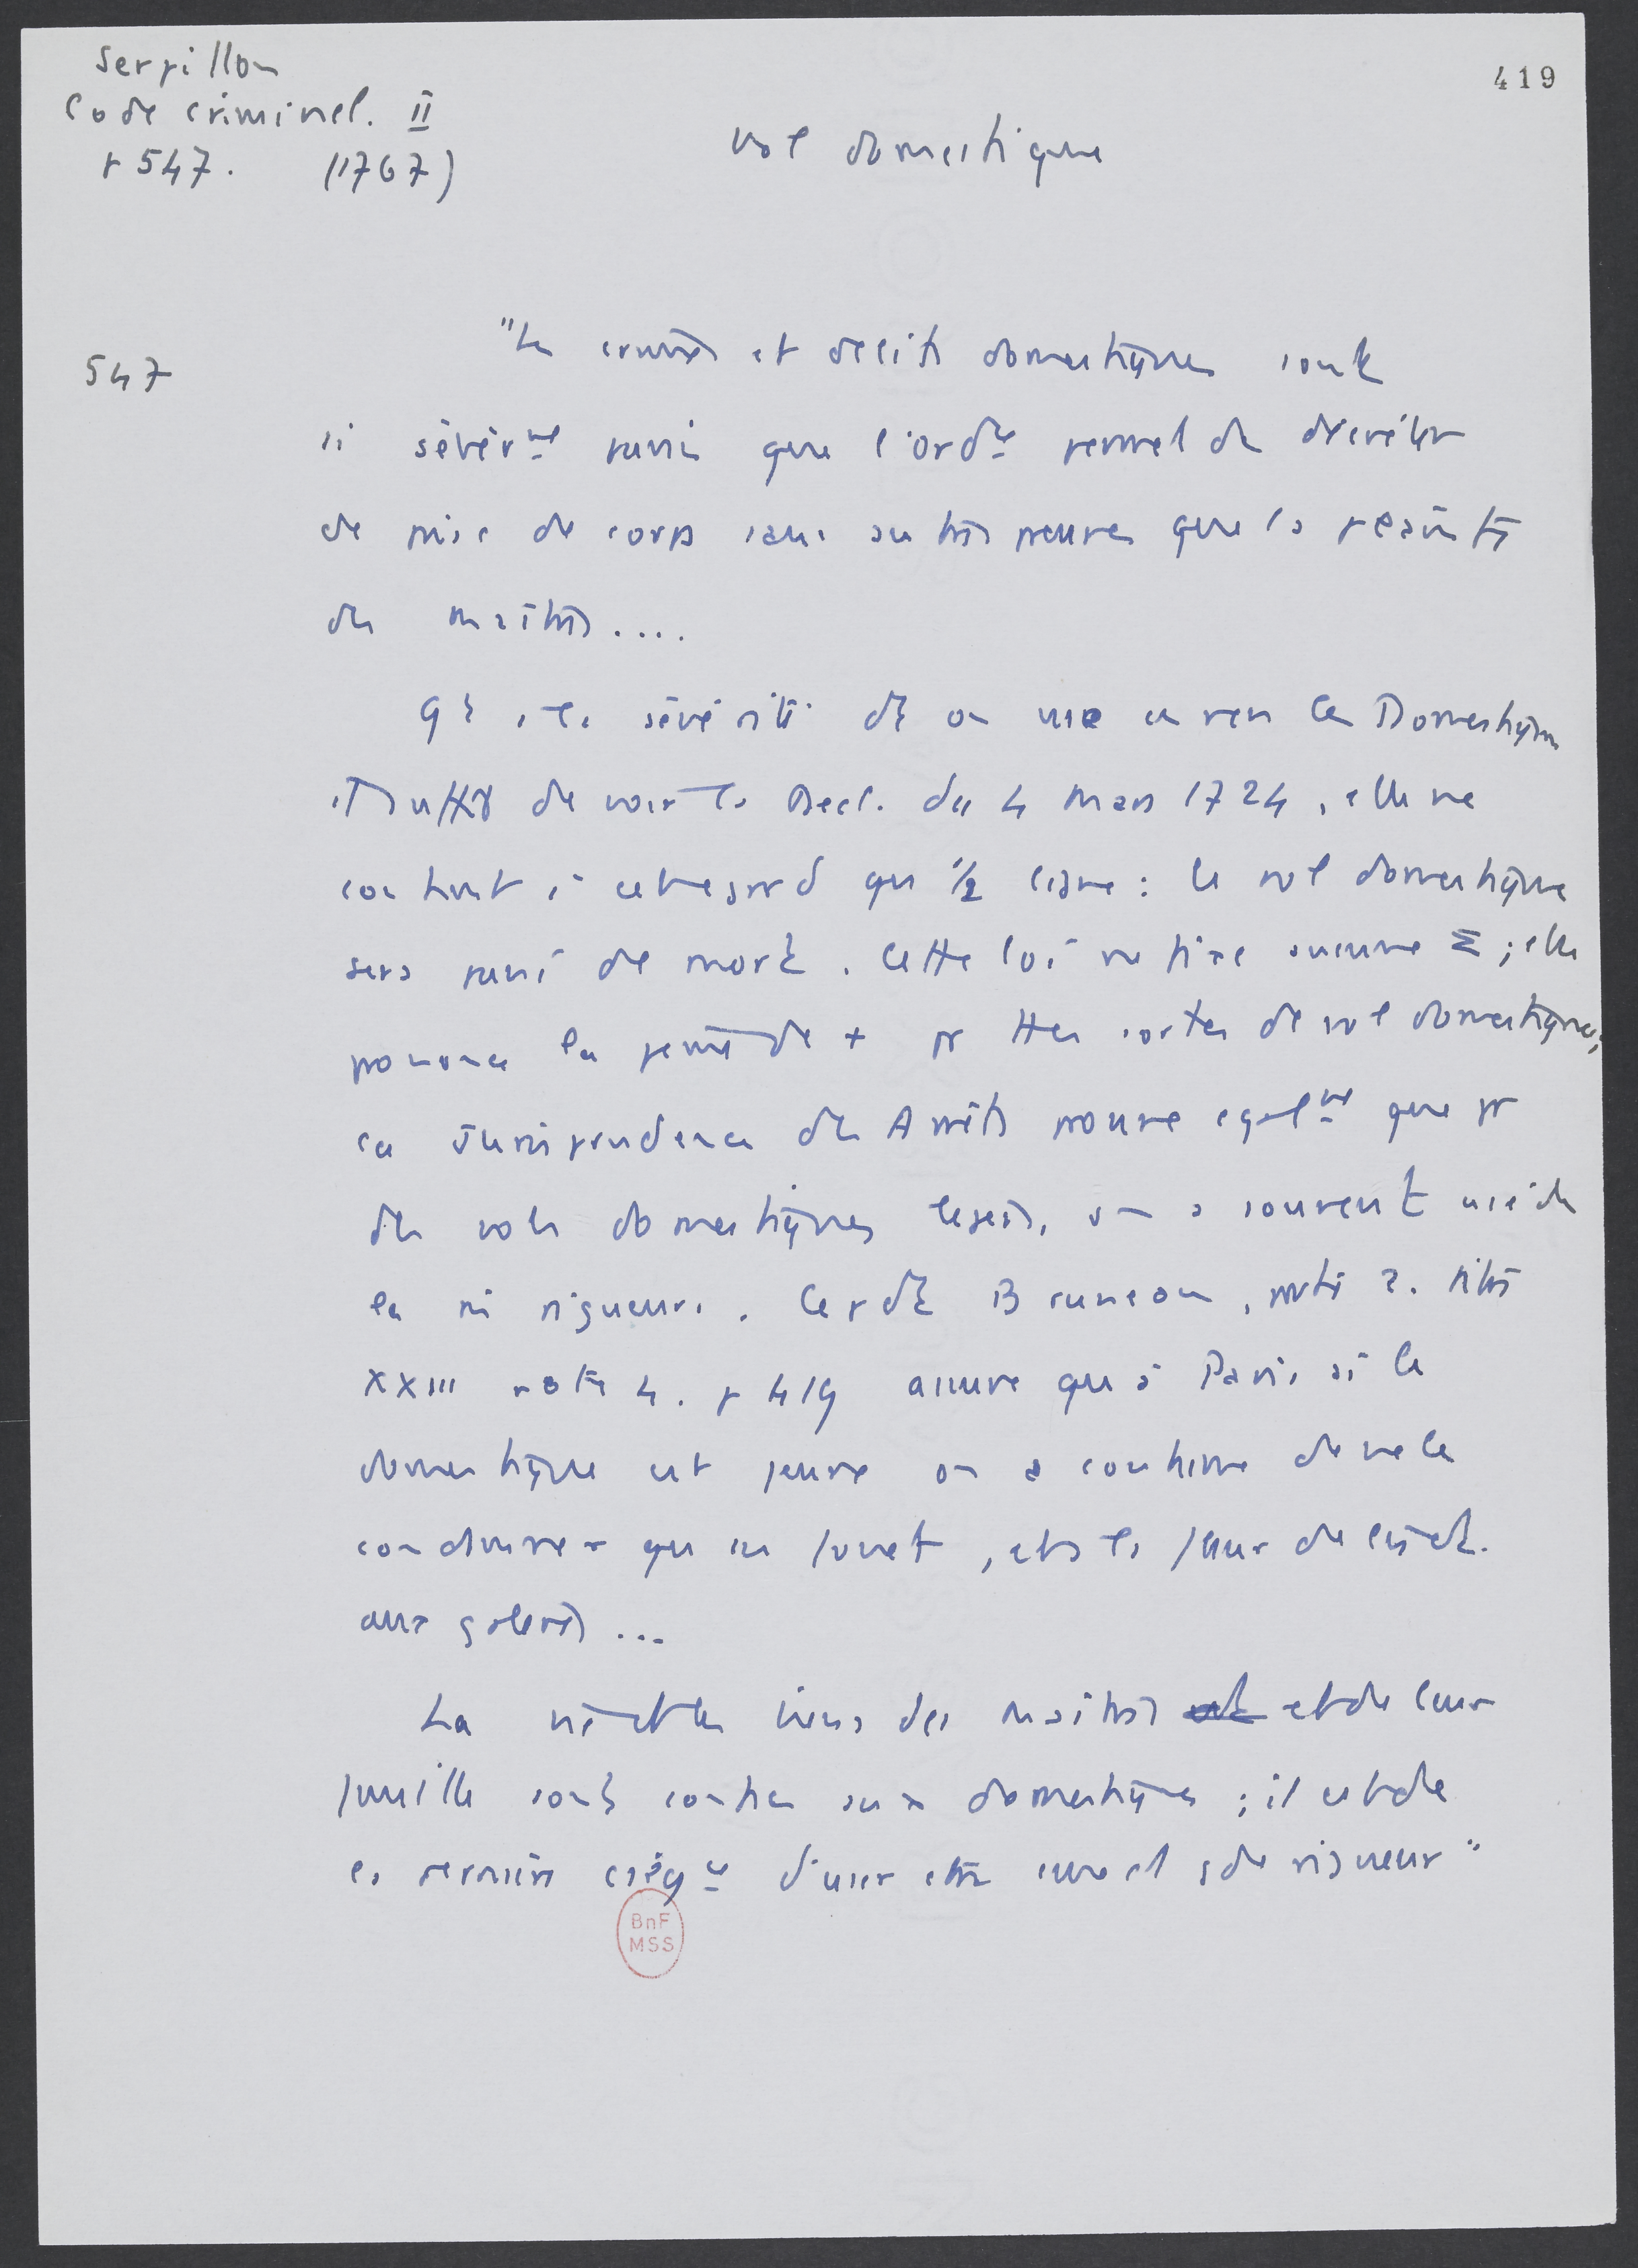 419
Serpillon
Code criminel. II
p 547. (1767)
Vol domestique
547
"Les crimes et délits domestiques sont
si sévèrmt punis que l'Ordce permet de décréter
de prise de corps sans autres preuves que la plainte
des maîtres....
à la sévérité dt on use envers les Domestiques
il suffit de voir la Decl. du 4 mars 1724, elle ne
contient à cet egard qu' 1/2 ligne : le vol domestique
sera puni de mort. Cette loi ne fixe aucune Σ ; elle
prononce la peine de + pr ttes sortes de vol domestiques,
la Jurisprudence des Arrêts prouve egalmt que pr
des vols domestiques legers, on a souvent usé de
la mi rigueur. Cepdt Bruneau, partie 2. titre
XXIII note 4. p 419 assure qu'à Paris si le
domestique est jeune on a coutume de ne le
condamner qu'au fouet, et à la fleur de lis et
aux galères...
La vie et les biens des maîtres et de leur
famille sont confiés aux domestiques ; il est de
la dernière d'user etre eux et de rigueur"
BnF
MSS